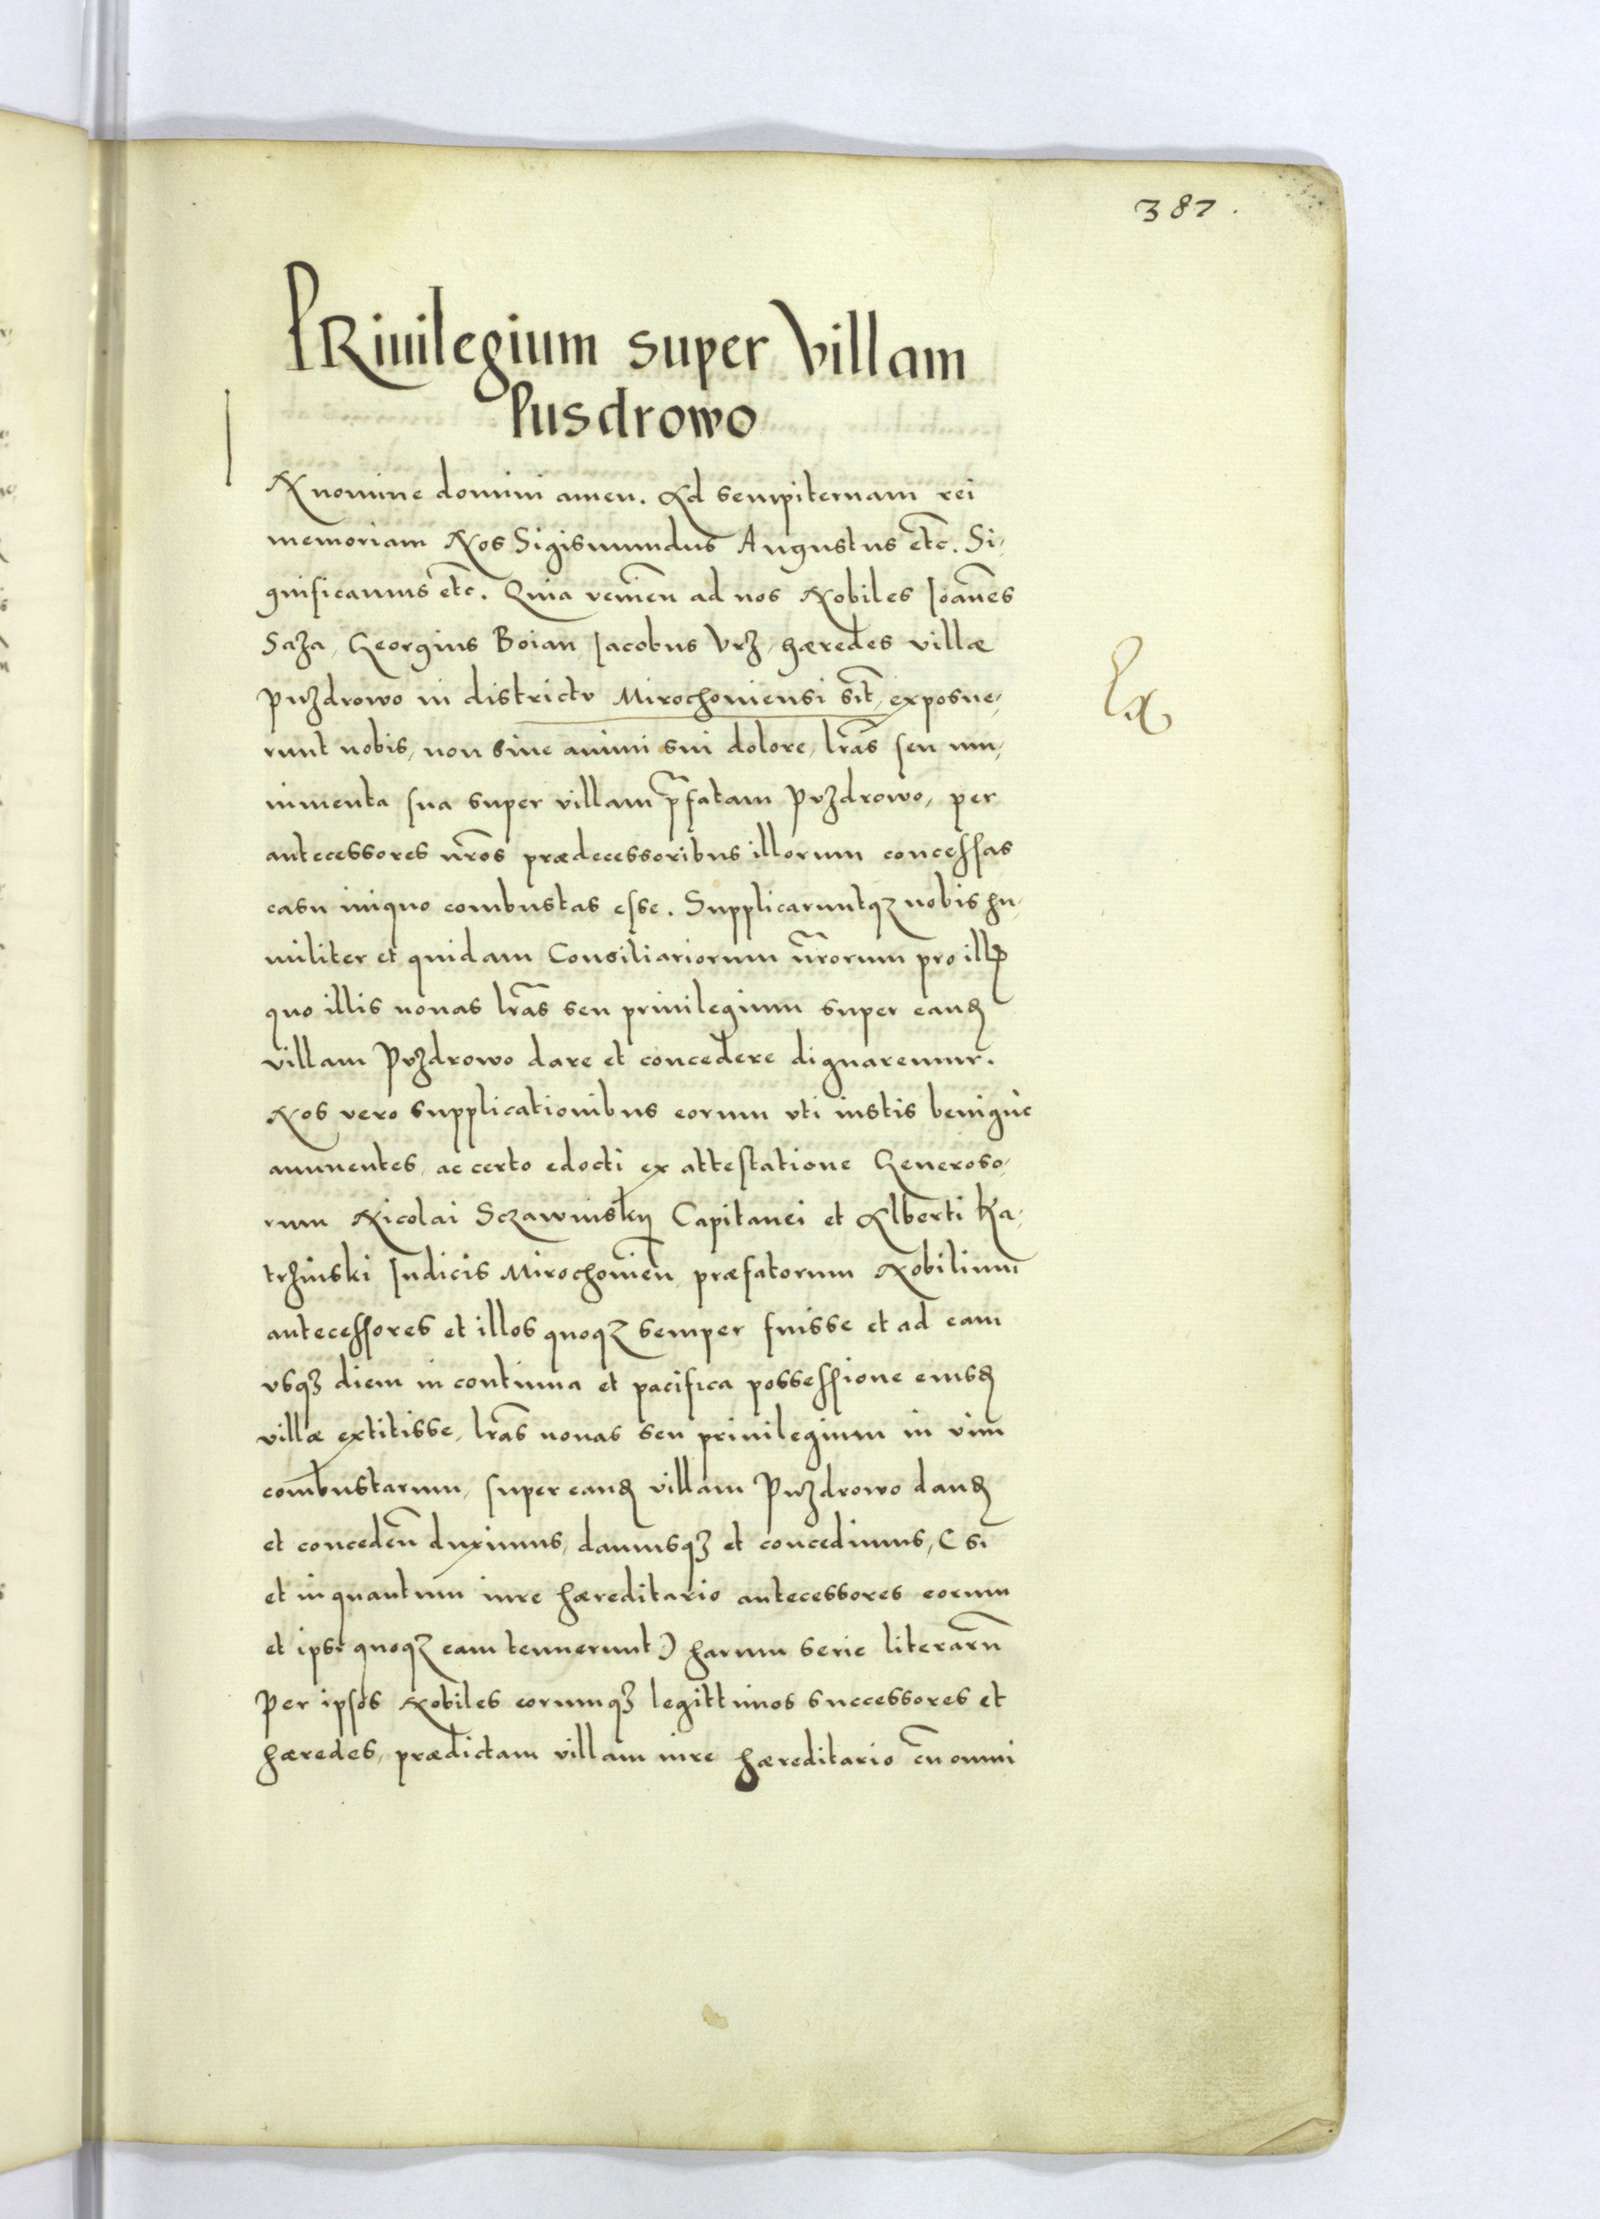 387.
PRiuilegium super Villam
Pusdrowo
IN nomine domini amen. Ad sempiternam rei
memoriam Nos Sigismundus Augustus etc. Si,
gnificamus etc. Quia venien̄ ad nos Nobiles Ioan̄es
Saza, Georgius Boian, Iacobus Vrz, hæredes villæ
Puzdrowo in districtu Mirochoniensi sit̄, exposue,
runt nobis, non sine animi sui dolore, lr̄as seu mu,
nimenta sua super villam p̄fatam Puzdrowo, per
antecessores nr̄os prædecessoribus illorum concessas
casu iniquo combustas esse. Supplicaruntqꝫ nobis hu,
militer et quidam Consiliariorum nr̄orum pro illis
quo illis nouas lr̄as seu priuilegium super eand
villam Puzdrowo dare et concedere dignaremur.
Nos vero supplicationibus eorum vti iustis benignè
annuentes, ac certo edocti ex attestatione Generoso,
rum Nicolai Sczawinsky Capitanei et Alberti Ka,
trzinski Iudicis Mirochonien̄ præfatorum Nobilium
antecessores et illos quoqꝫ semper fuisse et ad eam
vsqꝫ diem in continua et pacifica possessione eiusd
villæ extitisse, lr̄as nouas seu priuilegium in vim
combustarum, super eand villam Puzdrowo dand
et conceden̄ duximus, damusqꝫ et concedimus, (si
et inquantum iure hæreditario antecessores eorum
et ipsi quoqꝫ eam tenuerunt) harum serie literarū
Per ipsos Nobiles eorumqꝫ legittimos successores et
hæredes, prædictam villam iure hæreditario cū omni